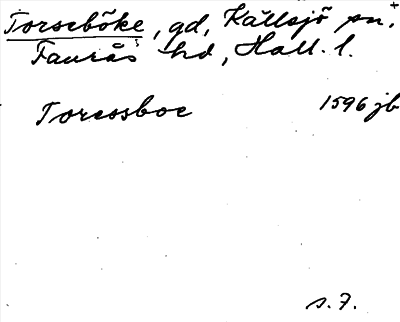 Torseböke, gd, Källsjö sn, +
Faurås hd, Hall. l.
Toressboe 1596 jb
s. 7.